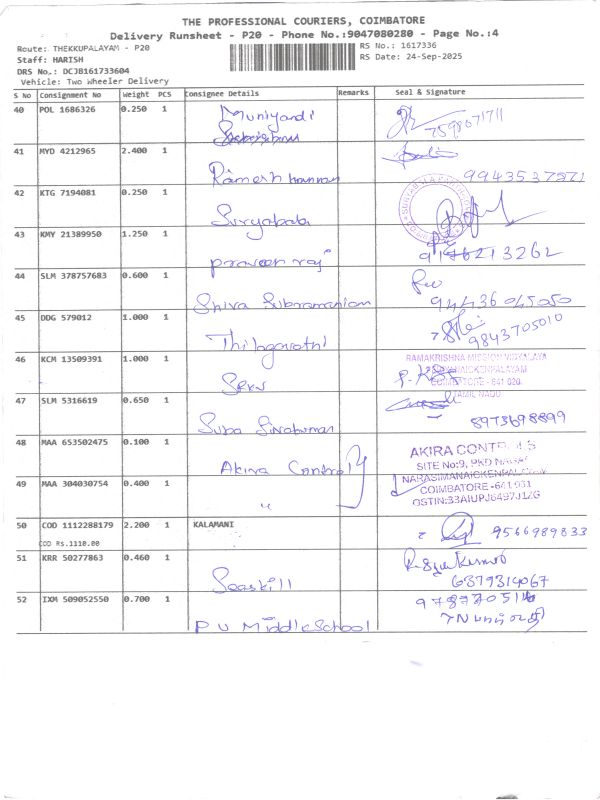 THE PROFESSIONAL COURIERS, COIMBATORE
Delivery Runsheet - P20 - Phone No.:9047080280 - Page No.:4
Route: THEKKUPALAYAM - P20
RS No.: 1617336
Staff: HARISH
RS Date: 24-Sep-2025
DRS No.: DCJB161733604
Vehicle: Two Wheeler Delivery
S No Consignment No Weight PCS Consignee Details Remarks Seal & Signature
40 POL 1686326 0.250 1 Muniyandi
7598071711
41 MYD 4212965 2.400 1 Ramesh
42 KTG 7194081 0.250 1 Suryabala
43 KMY 21389950 1.250 1 praveen raj
44 SLM 378757683 0.600 1 Shiva Subramaniam
94436045050
45 DDG 579012 1.000 1 Thilagavathi
9843705010
46 KCM 13509391 1.000 1
RAMAKRISHNA MISSION VIDYALAYA
COIMBATORE - 641 020
TAMIL NADU
47 SLM 5316619 0.650 1 Suba
8973698899
48 MAA 653502475 0.100 1 Akira Control
AKIRA
SITE No:9, PKD NAGAR
49 MAA 304030754 0.400 1 "
COIMBATORE - 641 031
50 COD 1112288179 2.200 1 KALAMANI
9566989833
COD Rs.1110.00
51 KRR 50277863 0.460 1 Seaskill
6379314067
52 IXM 509052550 0.700 1 P U Middle School